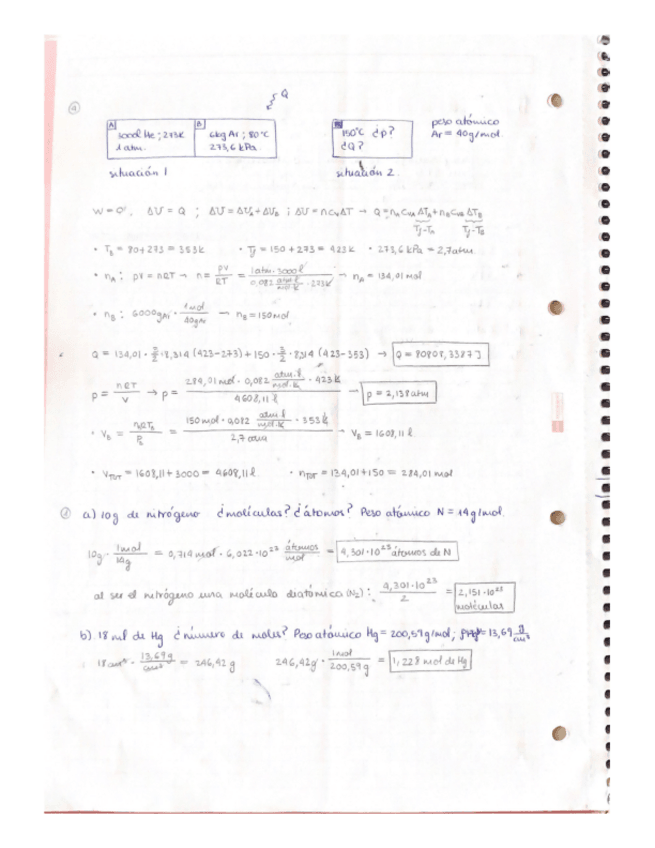 ④
Q
A
B
3000l He; 273K
1 atm.
6kg Ar; 80ºC
273,6 kPa.
150ºC ¿p?
¿Q?
peso atómico
Ar = 40g/mol.
situación 1
situación 2.
W = 0, ΔU = Q ; ΔU = ΔU_A + ΔU_B ; ΔU = n c_V ΔT → Q = n_A c_VA ΔT_A + n_B c_VB ΔT_B
T_f - T_A T_f - T_B
• T_B = 80 + 273 = 353K • T_f = 150 + 273 = 423K • 273,6 kPa = 2,7atm.
• n_A: pV = nRT → n = pV/RT = 1atm · 3000l / 0,082 atm·l/mol·K · 273K → n_A = 134,01 mol
• n_B: 6000gAr · 1mol/40gAr → n_B = 150mol
Q = 134,01 · 3/2 · 8,314 (423-273) + 150 · 3/2 · 8,314 (423-353) → Q = 80808,3387 J
p = nRT/V → p = 284,01 mol · 0,082 atm·l/mol·K · 423K / 4608,11 l → p = 2,138atm
• V_B = n_B R T_B / P_B = 150mol · 0,082 atm·l/mol·K · 353K / 2,7 atm → V_B = 1608,11 l
• V_TOT = 1608,11 + 3000 = 4608,11 l • n_TOT = 134,01 + 150 = 284,01 mol
a) 10g de nitrógeno ¿moléculas? ¿átomos? Peso atómico N = 14g/mol.
10g · 1mol/14g = 0,714 mol · 6,022·10²³ átomos/mol = 4,301·10²³ átomos de N
al ser el nitrógeno una molécula diatómica (N₂): 4,301·10²³/2 = 2,151·10²³ moléculas
b) 18 ml de Hg ¿número de moles? Peso atómico Hg = 200,59g/mol; = 13,69 g/cm³
18cm³ · 13,69g/cm³ = 246,42 g 246,42g · 1mol/200,59g = 1,228 mol de Hg